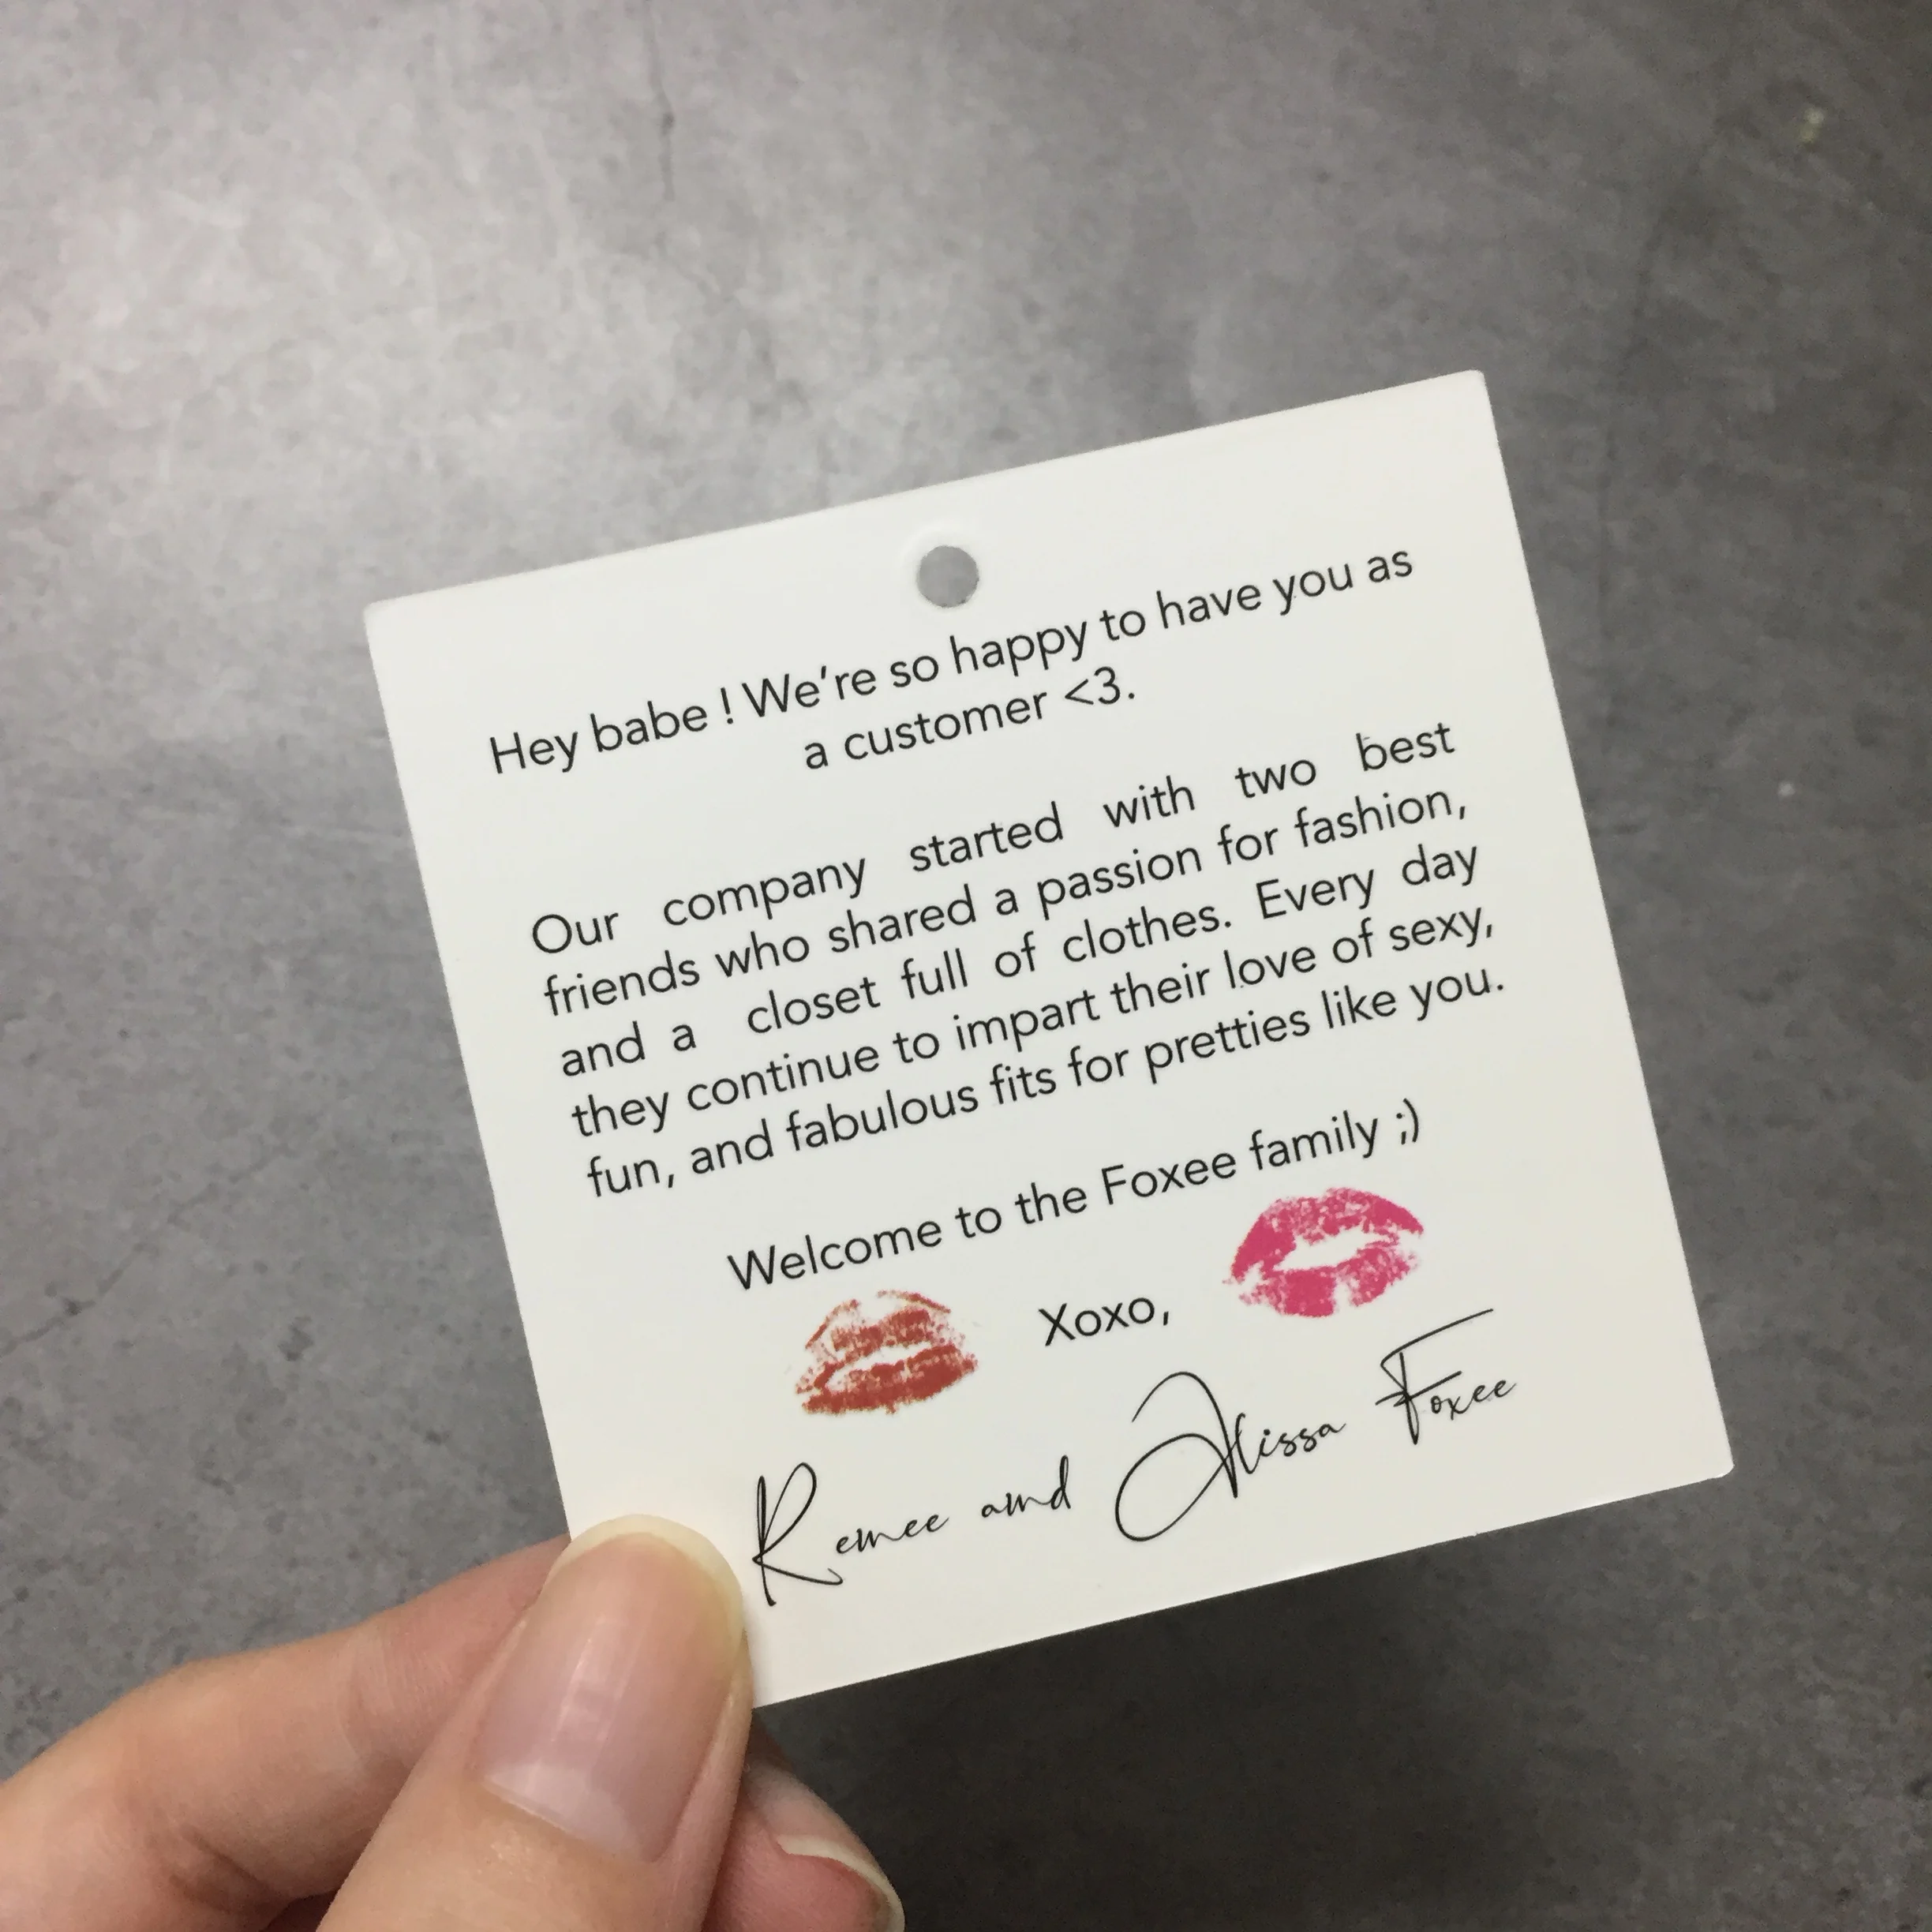 Hey babe ! We're so happy to have you as
a customer <3.
Our company started with two best
friends who shared a passion for fashion,
and a closet full of clothes. Every day
they continue to impart their love of sexy,
fun, and fabulous fits for pretties like you.
Welcome to the Foxee family ;)
Xoxo,
Renee and Alissa Foxee